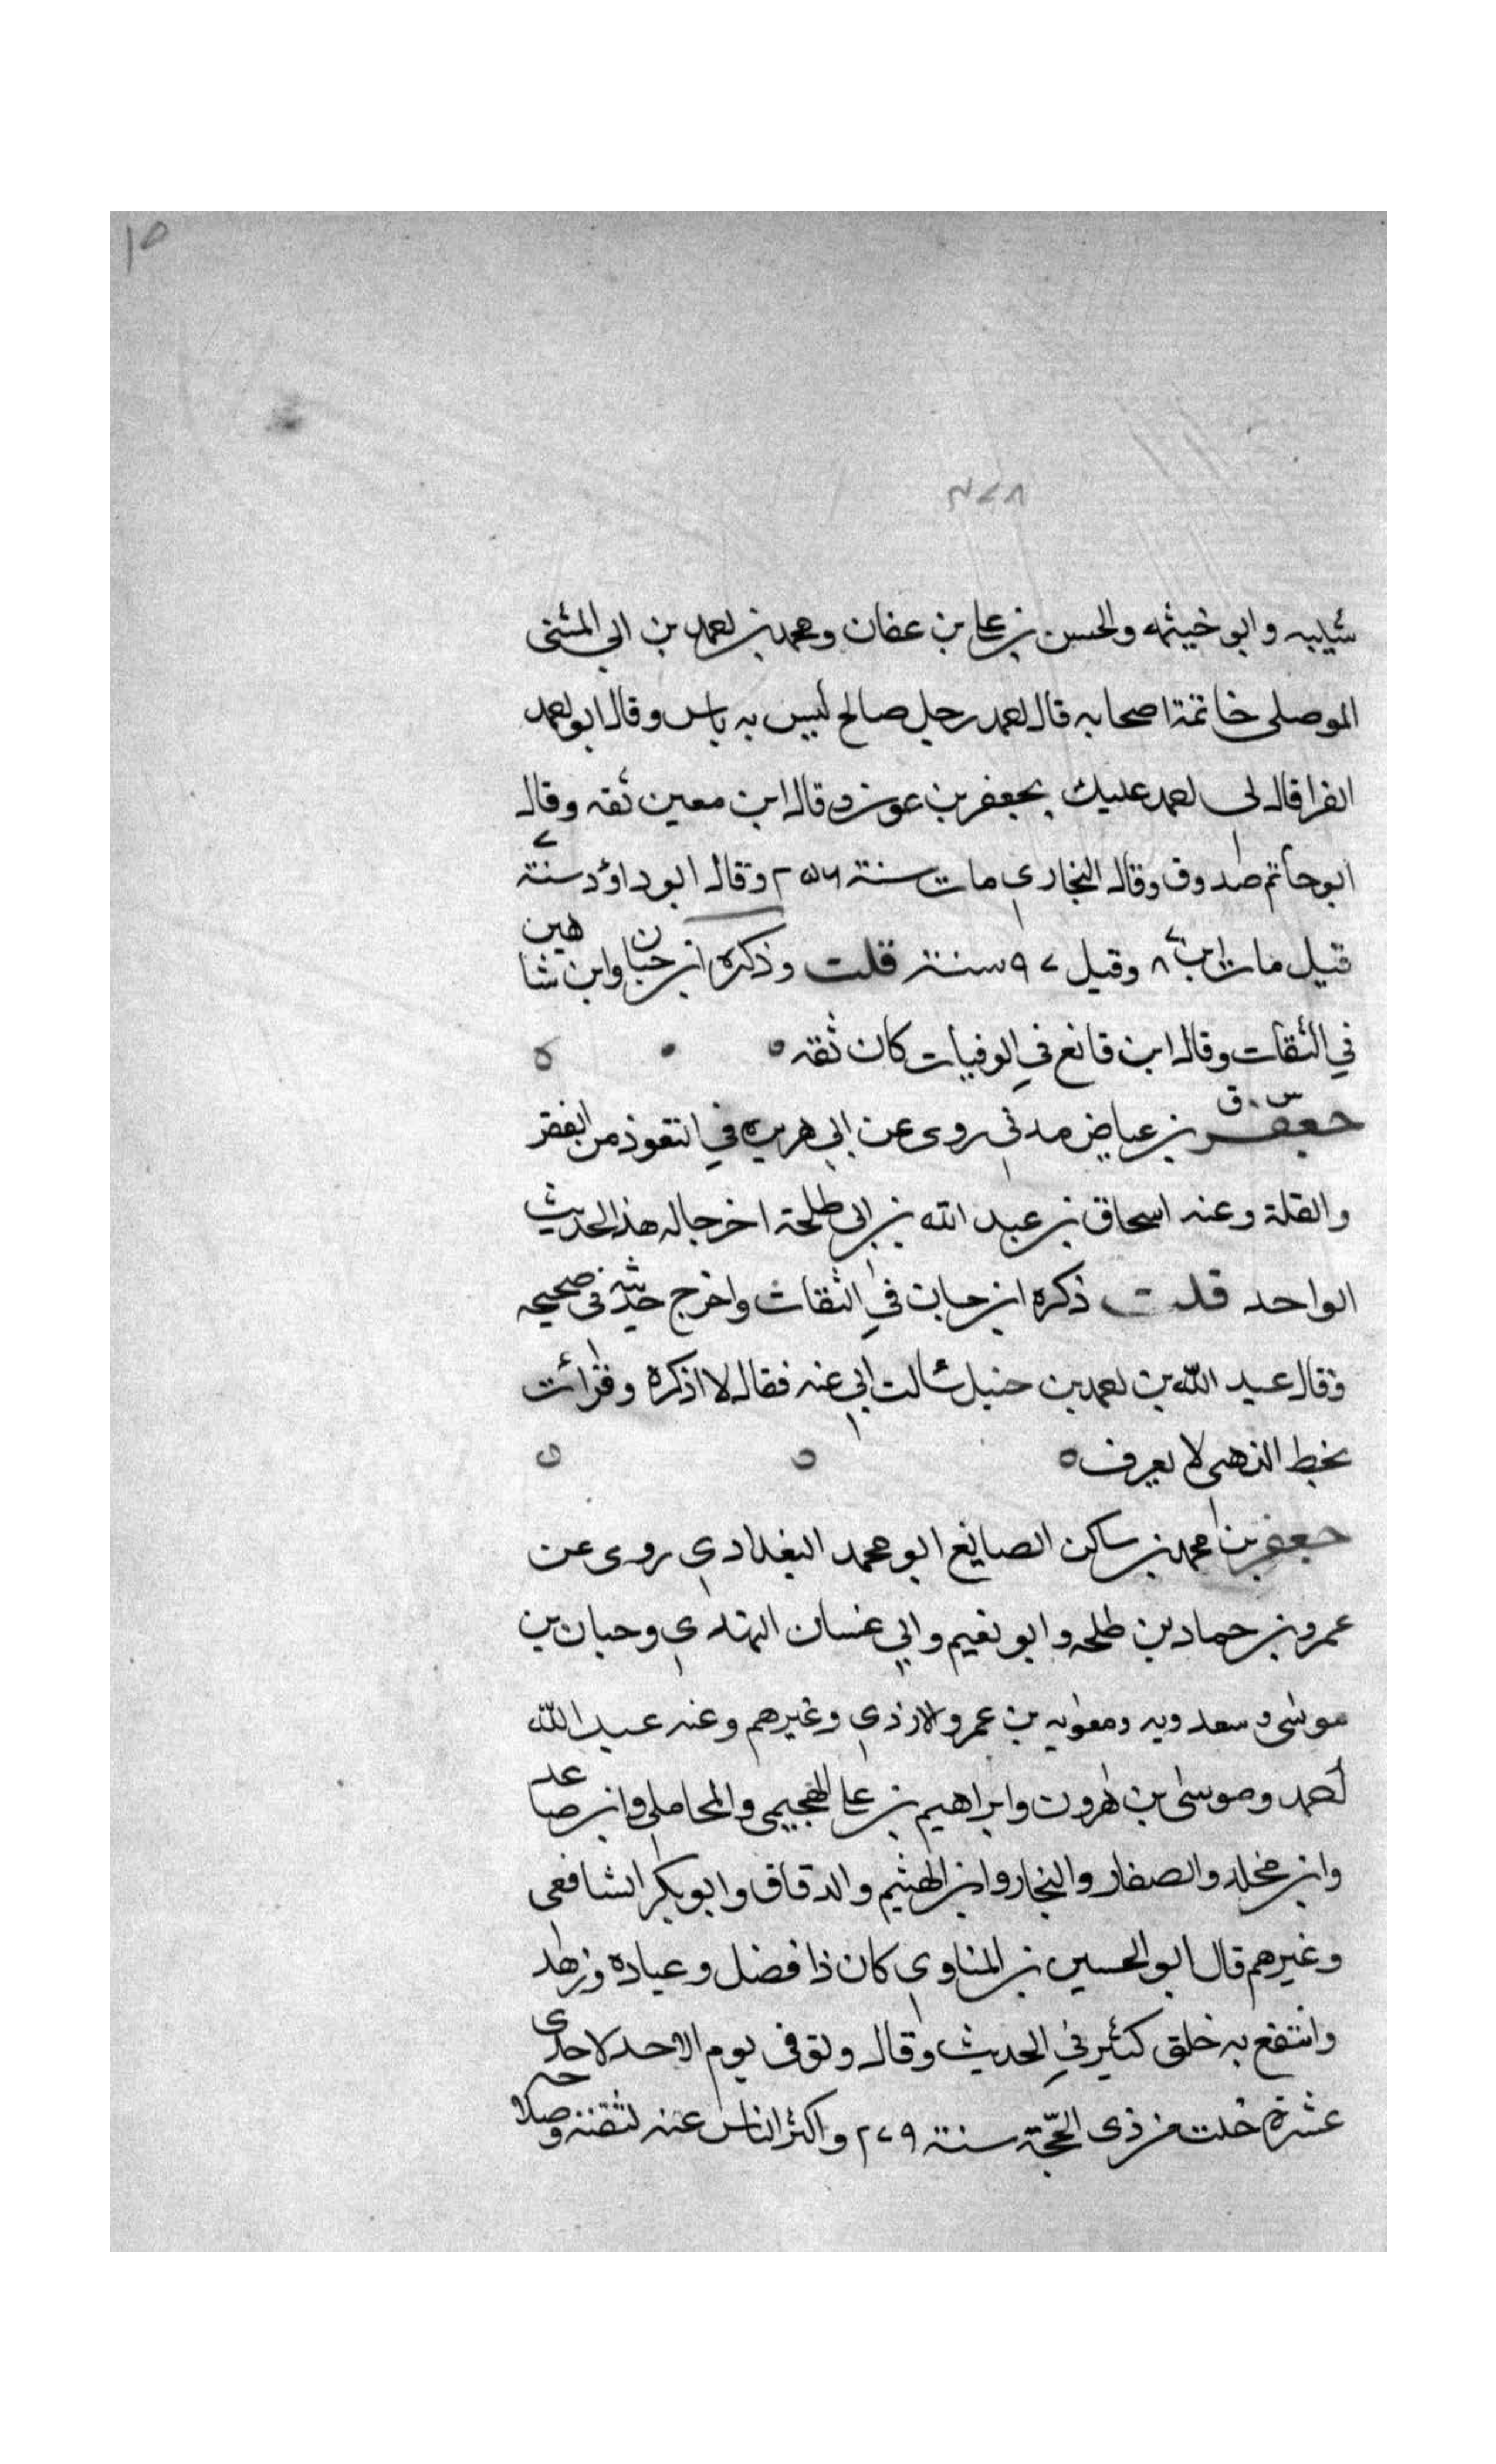 ١٥
٢٧٨
شيبه وابو خيثمه والحسن بن علي بن عفان ومحمد بن احمد بن ابي المثنى
الموصلي خاتمة اصحابه قال احمد رجل صالح ليس به باس وقال ابو احمد
الفرا قال لي احمد عليك بجعفر بن عون وقال ابن معين ثقه وقال
ابو حاتم صدوق وقال البخاري مات سنة ٢٥٦ وقال ابو داؤد سنة ٧
قيل مات ابن ٨٧ وقيل ٩٧ سنة قلت وذكره ابن حبان وابن شاهين
في الثقات وقال ابن قانع في الوفيات كان ثقه
س ق
جعفر بن عياض مدني روى عن ابي هريره في التعوذ من الفقر
والقلة وعنه اسحاق بن عبد الله بن ابي طلحة اخرجا له هذا الحديث
الواحد قلت ذكره ابن حبان في الثقات واخرج حديثه في صحيحه
وقال عبد الله بن احمد بن حنبل سالت ابي عنه فقال لا اذكره وقرائت
بخط الذهبي لا يعرف
جعفر بن محمد بن ساكن الصايغ ابو محمد البغدادي روى عن
عمرو بن حماد بن طلحه وابو نعيم وابي غسان النهدي وحبان بن
موسى وسعدويه ومعويه بن عمرو الازدي وغيرهم وعنه عبد الله
احمد وموسى بن هرون وابراهيم بن علي الهجيمي والمحاملي وابن صاعد
وابن مخلد والصفار والنجار وابن الهثيم والدقاق وابو بكر الشافعي
وغيرهم قال ابو الحسين بن المناوي كان ذا فضل وعباده وزهد
وانتفع به خلق كثير في الحديث وقال وتوفى يوم الاحد لاحدى
عشرة خلت من ذى الحجة سنة ٢٧٩ واكثر الناس عنه لثقته وصلاحه